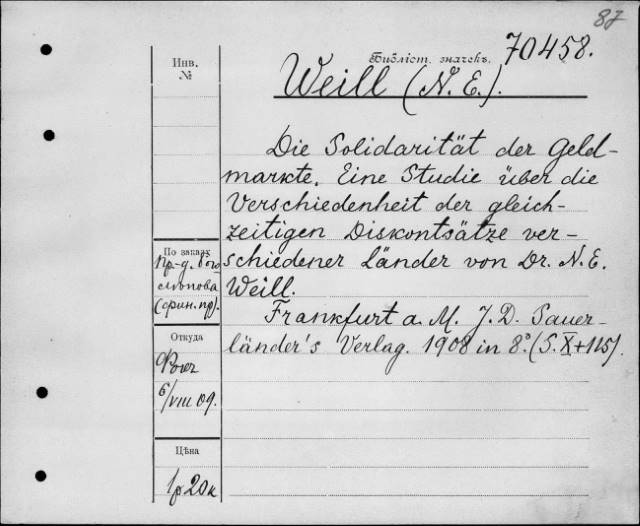 87
70458.
Библіот. значекъ.
Инв.
№
Weill (N. E.).
Die Solidarität der Geld-
markte. Eine Studie über die
Verschiedenheit der gleich-
zeitigen Diskontsätze ver-
schiedener Länder von Dr. N. E.
Weill.
Frankfurt a. M. J. D. Sauer-
länder's Verlag. 1908 in 8°. (S. X+115).
По заказу
пр-д. Бого
слопова
(фин. пр).
Откуда
6/VIII 09.
Цѣна
1р 20к